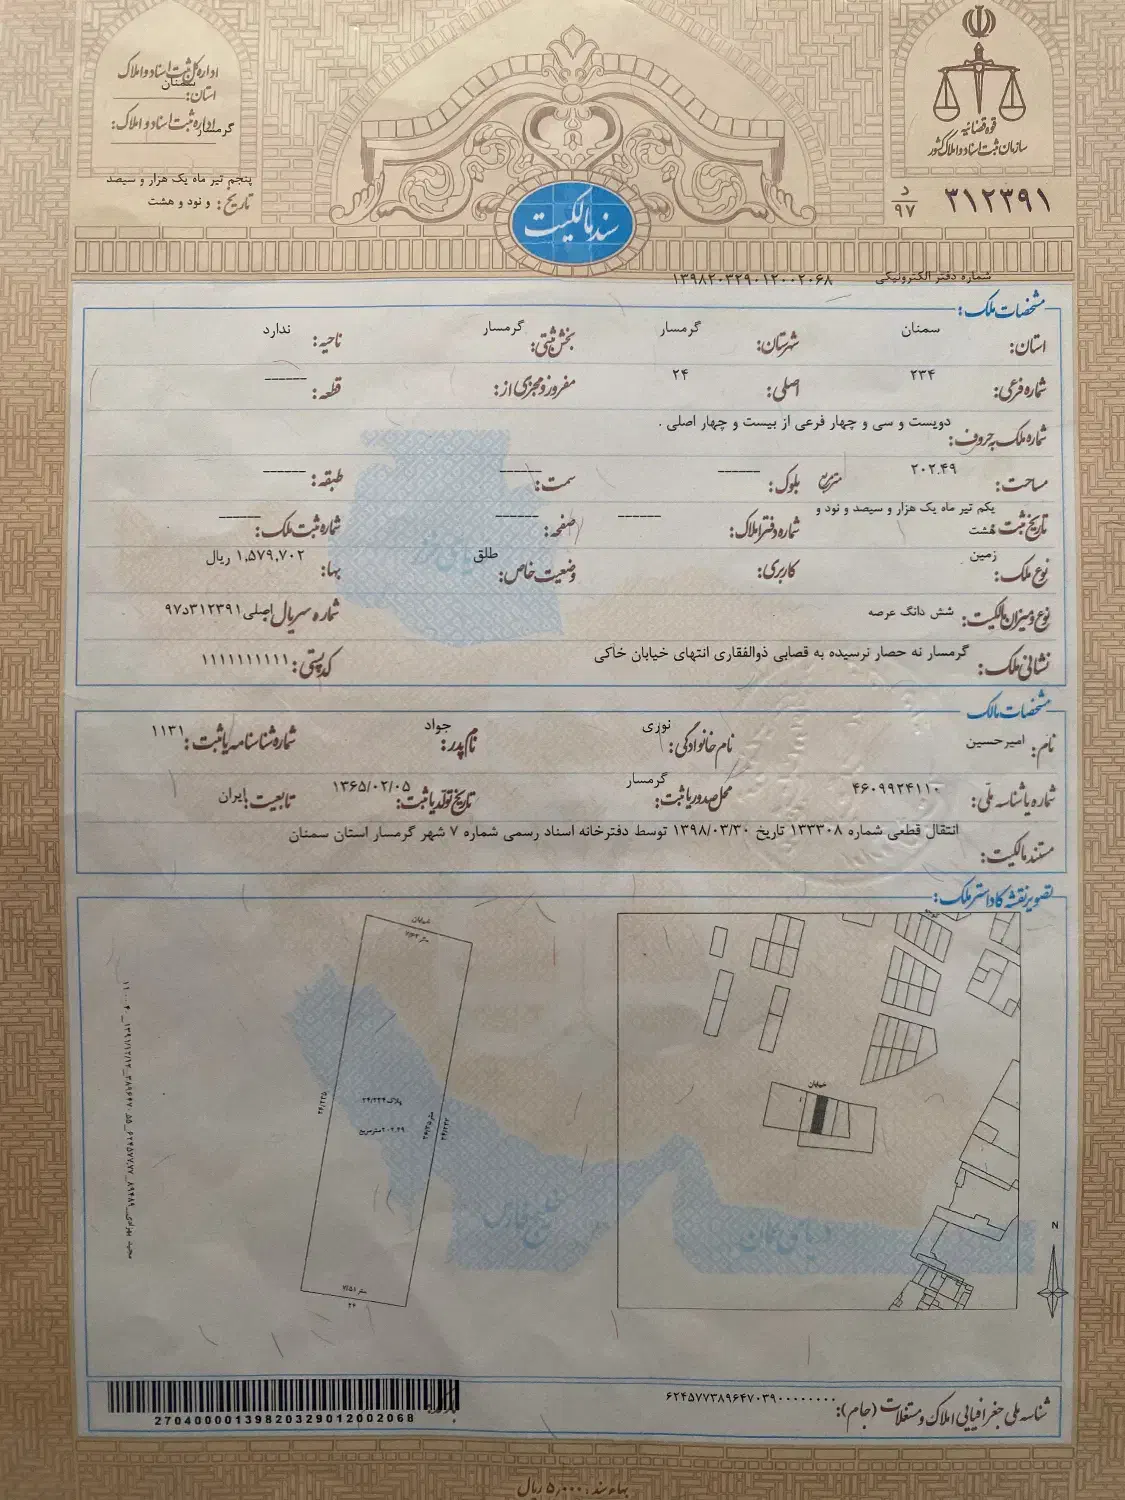 قوه قضائیه
سازمان ثبت اسناد و املاک کشور
۳۱۲۳۹۱ د ۹۷
اداره کل ثبت اسناد و املاک
استان: سمنان
اداره ثبت اسناد و املاک: گرمسار
تاریخ: پنجم تیر ماه یک هزار و سیصد و نود و هشت
سند مالکیت
شماره دفتر الکترونیکی ۱۳۹۸۲۰۳۲۹۰۱۲۰۰۲۰۶۸
مشخصات ملک:
استان: سمنان شهرستان: گرمسار بخش ثبتی: گرمسار ناحیه: ندارد
شماره فرعی: ۲۳۴ اصلی: ۲۴ مفروز و مجزی از: قطعه: ------
شماره ملک به حروف: دویست و سی و چهار فرعی از بیست و چهار اصلی .
مساحت: ۲۰۲.۴۹ مترمربع بلوک: ------ سمت: ------ طبقه: ------
تاریخ ثبت: یکم تیر ماه یک هزار و سیصد و نود و هشت شماره دفتر املاک: ------ صفحه: ------ شماره ثبت ملک: ------
نوع ملک: زمین کاربری: وضعیت خاص: طلق بها: ۱,۵۷۹,۷۰۲ ریال
نوع و میزان مالکیت: شش دانگ عرصه شماره سریال اصلی ۳۱۲۳۹۱د۹۷
نشانی ملک: گرمسار نه حصار نرسیده به قصابی ذوالفقاری انتهای خیابان خاکی کد پستی: ۱۱۱۱۱۱۱۱۱۱
مشخصات مالک
نام: امیرحسین نام خانوادگی: نوری نام پدر: جواد شماره شناسنامه یا ثبت: ۱۱۳۱
شماره یا شناسه ملی: ۴۶۰۹۹۲۴۱۱۰ محل صدور یا ثبت: گرمسار تاریخ تولد یا ثبت: ۱۳۶۵/۰۲/۰۵ تابعیت: ایران
مستند مالکیت: انتقال قطعی شماره ۱۳۳۳۰۸ تاریخ ۱۳۹۸/۰۳/۳۰ توسط دفترخانه اسناد رسمی شماره ۷ شهر گرمسار استان سمنان
تصویر نقشه کاداستر ملک:
خیابان
پلاک ۲۴/۲۳۴
۲۰۲.۴۹ مترمربع
۲۴/۲۳۵
خیابان
N
خلیج فارس
دریای عمان
شناسه ملی جغرافیایی املاک و مستغلات (جام): ۶۲۴۵۷۷۳۸۹۶۴۷۰۳۹۰۰۰۰۰۰۰۰۰
27040000139820329012002068
بهاء سند: ۵٫۰۰۰ ریال